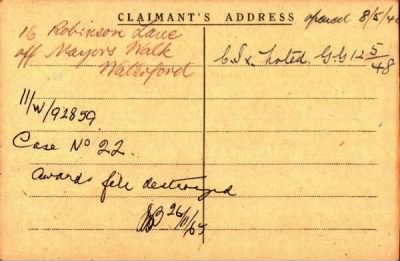 CLAIMANT'S ADDRESS opened 8/5/
16 Robinson Lane
off Mayors Walk
Waterford
Noted. 5/48
11/W/92859
Case No 22
Awards file destroyed
26/11/65